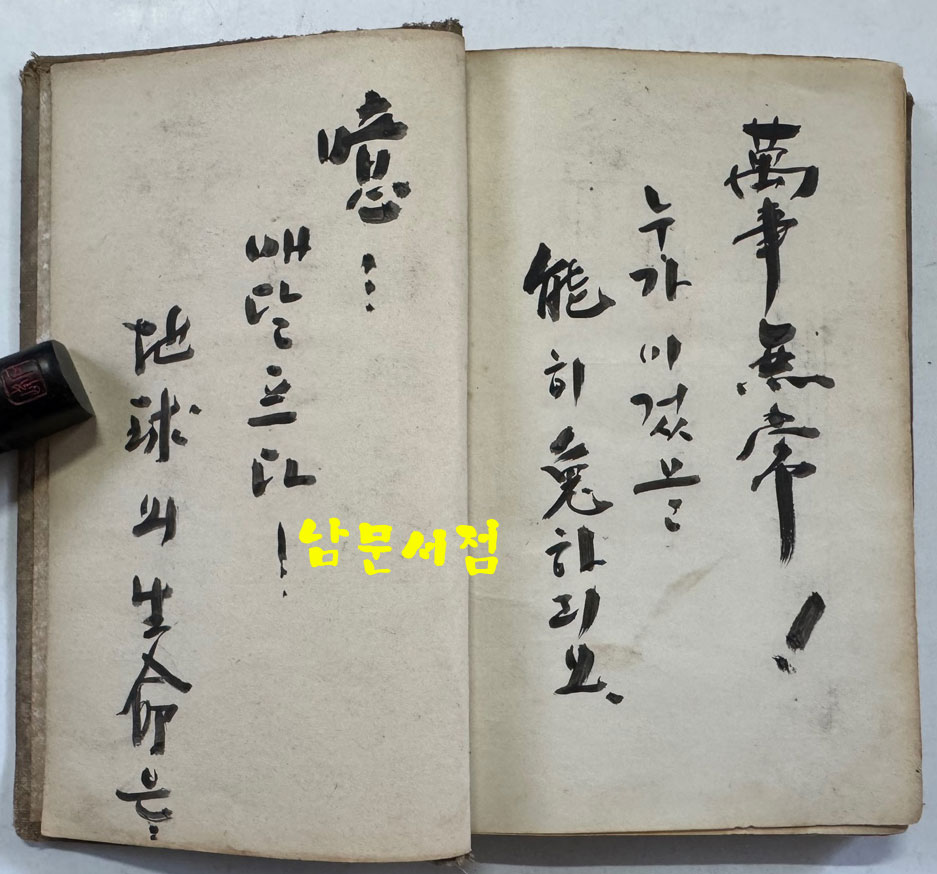 萬事無常!
누가 이것을
能히 免하리요.
噫…
애달프다!
地球의 生命은
남문서점